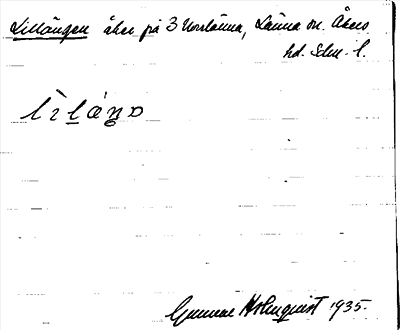 Lillängen åker på 3 Norrlänna, Länna sn. Åkers
hd. Södm. l.
Gunnar Holmquist 1935.